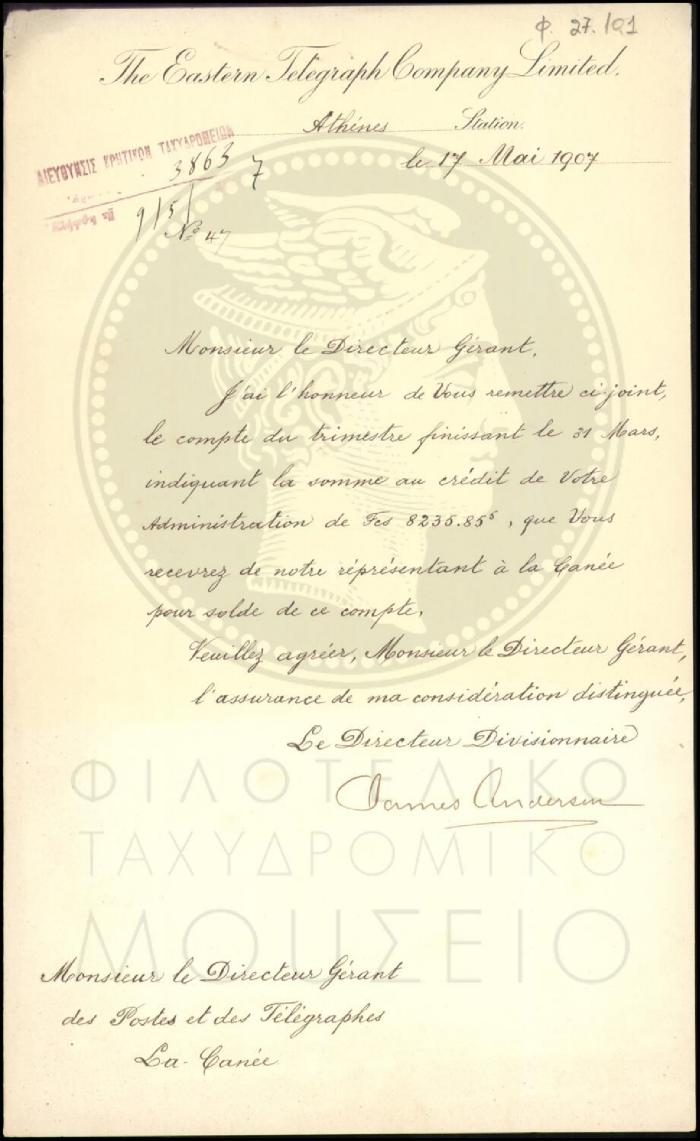 Φ. 27./91
The Eastern Telegraph Company Limited.
Athénes Station.
le 17 Mai 1907
ΔΙΕΥΘΥΝΣΙΣ ΚΡΗΤΙΚΩΝ ΤΑΧΥΔΡΟΜΕΙΩΝ
3863
7
9/5/
No 47
Monsieur le Directeur Gérant,
J'ai l'honneur de Vous remettre ci joint,
le compte du trimestre finissant le 31 Mars,
indiquant la somme au crédit de Votre
Administration de Fcs 8235.85⁵, que Vous
recevrez de notre réprésentant à la Canée
pour solde de ce compte.
Veuillez agréer, Monsieur le Directeur Gérant,
l'assurance de ma considération distinguée,
Le Directeur Divisionnaire
James Anderson
ΦΙΛΟΤΕΛΙΚΟ
ΤΑΧΥΔΡΟΜΙΚΟ
ΜΟΥΣΕΙΟ
Monsieur le Directeur Gérant
des Postes et des Télégraphes
La-Canée